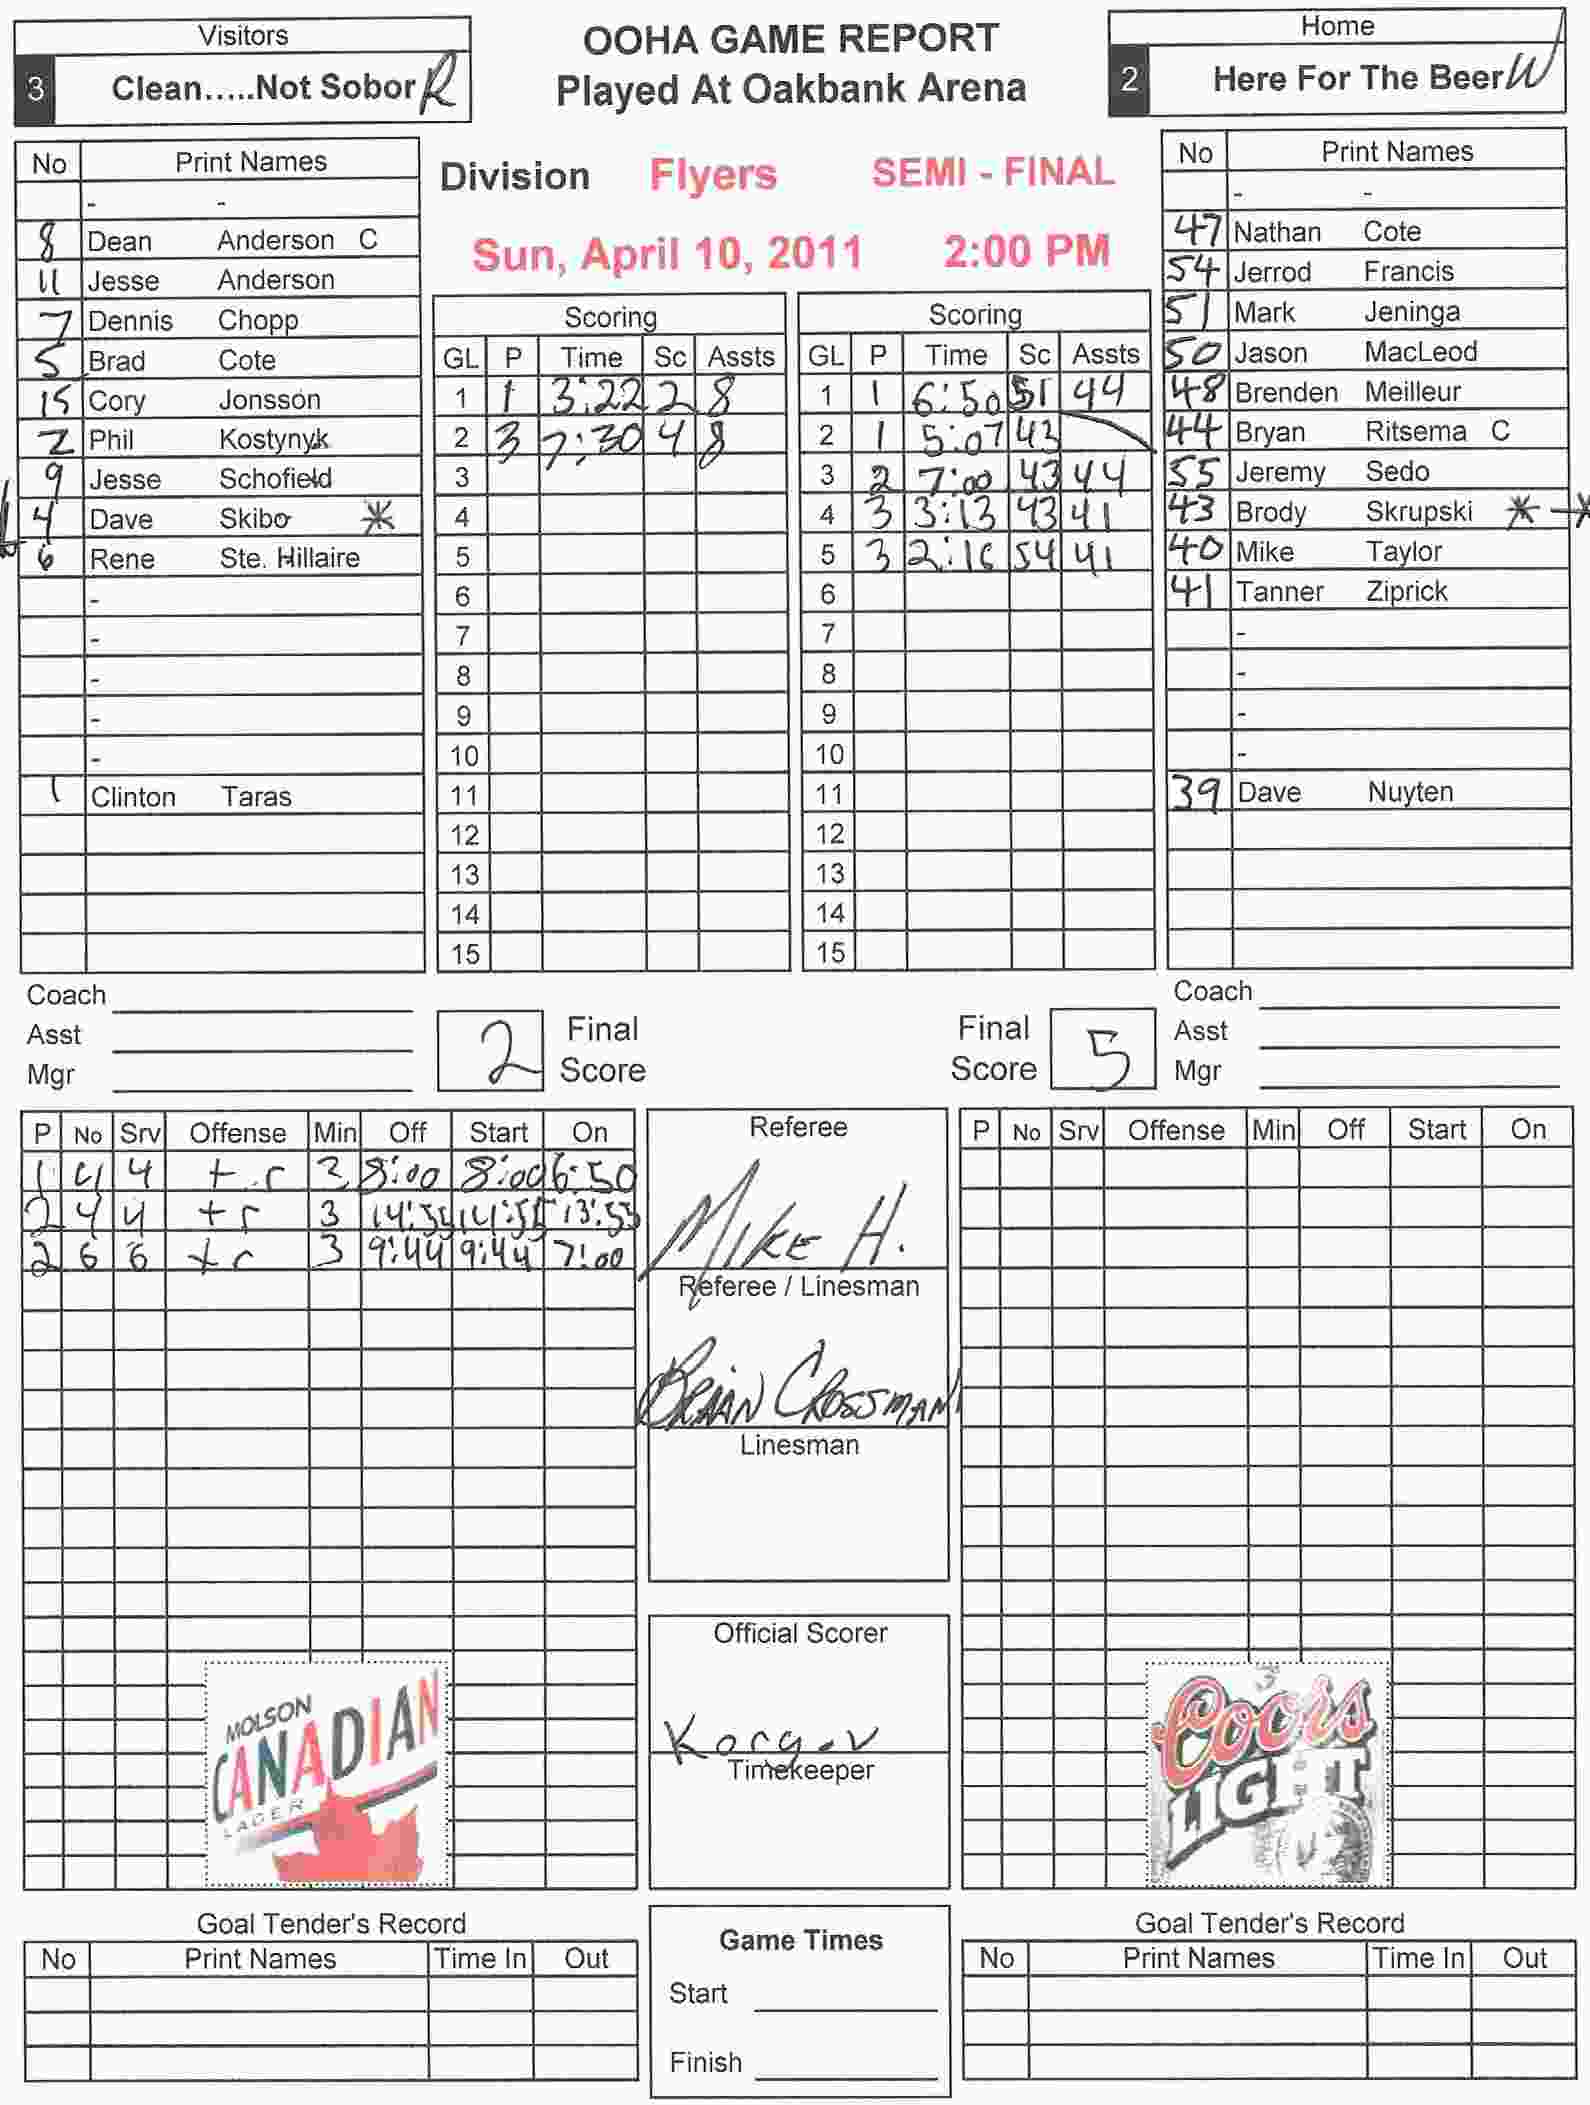 Visitors
3 Clean.....Not Sobor R
OOHA GAME REPORT
Played At Oakbank Arena
Home
2 Here For The Beer W
Division Flyers SEMI - FINAL
Sun, April 10, 2011 2:00 PM
No Print Names
- -
8 Dean Anderson C
11 Jesse Anderson
7 Dennis Chopp
5 Brad Cote
15 Cory Jonsson
2 Phil Kostynyk
9 Jesse Schofield
4 Dave Skibo *
6 Rene Ste. Hillaire
-
-
-
-
-
1 Clinton Taras
Scoring
GL P Time Sc Assts
1 1 3:22 2 8
2 3 7:30 4 8
3
4
5
6
7
8
9
10
11
12
13
14
15
Scoring
GL P Time Sc Assts
1 1 6:50 51 44
2 1 5:07 43
3 2 7:00 43 44
4 3 3:13 43 41
5 3 2:16 54 41
6
7
8
9
10
11
12
13
14
15
No Print Names
- -
47 Nathan Cote
54 Jerrod Francis
51 Mark Jeninga
50 Jason MacLeod
48 Brenden Meilleur
44 Bryan Ritsema C
55 Jeremy Sedo
43 Brody Skrupski * *
40 Mike Taylor
41 Tanner Ziprick
-
-
-
-
39 Dave Nuyten
Coach
Asst
Mgr
2 Final Score
Final Score 5
Coach
Asst
Mgr
P No Srv Offense Min Off Start On
1 4 4 tr 2 8:00 8:00 6:50
2 4 4 tr 3 14:55 14:55 13:55
2 6 6 tr 3 9:44 9:44 7:00
Referee
MIKE H.
Referee / Linesman
BRIAN CROSSMAN
Linesman
Official Scorer
Timekeeper
P No Srv Offense Min Off Start On
MOLSON
CANADIAN
LAGER
Coors
LIGHT
Goal Tender's Record
No Print Names Time In Out
Game Times
Start
Finish
Goal Tender's Record
No Print Names Time In Out